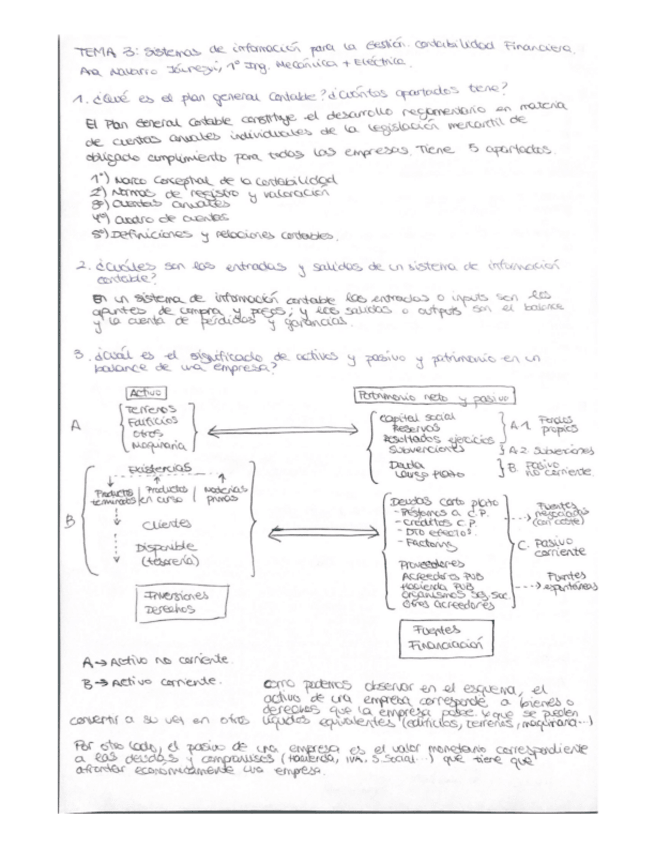 TEMA 3: Sistemas de información para la Gestión. Contabilidad Financiera.
Ana Navarro 1º Ing. Mecánica + Eléctrica.
1. ¿Qué es el plan general contable? ¿cuántos apartados tiene?
El Plan General Contable constituye el desarrollo reglamentario en materia
de cuentas anuales individuales de la legislación mercantil de
obligado cumplimiento para todas las empresas. Tiene 5 apartados.
1º) Marco Conceptual de la Contabilidad
2º) Normas de registro y valoración
3º) Cuentas anuales
4º) Cuadro de cuentas
5º) Definiciones y relaciones contables.
2. ¿Cuáles son las entradas y salidas de un sistema de información
contable?
En un sistema de información contable las entradas o inputs son los
apuntes de compra y pagos; y las salidas o outputs son el balance
y la cuenta de pérdidas y ganancias.
3. ¿Cuál es el significado de activos y pasivo y patrimonio en un
balance de una empresa?
Activo
Patrimonio neto y pasivo
A
Terrenos
Edificios
Otros
Maquinaria
Capital social
Reservas
Resultados ejercicios
Subvenciones
A.1. Fondos
propios
A.2. Subvenciones
Deuda
Largo plazo
B. Pasivo
no corriente.
B
Existencias
Productos terminados | Productos en curso | Materias primas
Clientes
Disponible
(tesorería)
Inversiones
Derechos
Deudas corto plazo
- Préstamos a C.P.
- Créditos C.P.
- Dto efectos.
- Factoring
Proveedores
Acreedores PUB
Hacienda PUB
Organismos Seg. Soc.
Otros acreedores
Fuentes
negociadas
(con coste)
C. Pasivo
corriente
Fuentes
espontáneas
Fuentes
Financiación
A → Activo no corriente.
B → Activo corriente.
Como podemos observar en el esquema, el
activo de una empresa corresponde a bienes o
derechos que la empresa posee y que se pueden
convertir a su vez en otros líquidos equivalentes (edificios, terrenos, maquinaria...)
Por otro lado, el pasivo de una empresa es el valor monetario correspondiente
a las deudas y compromisos (Hacienda, IVA, S. Social...) que tiene que
afrontar económicamente una empresa.